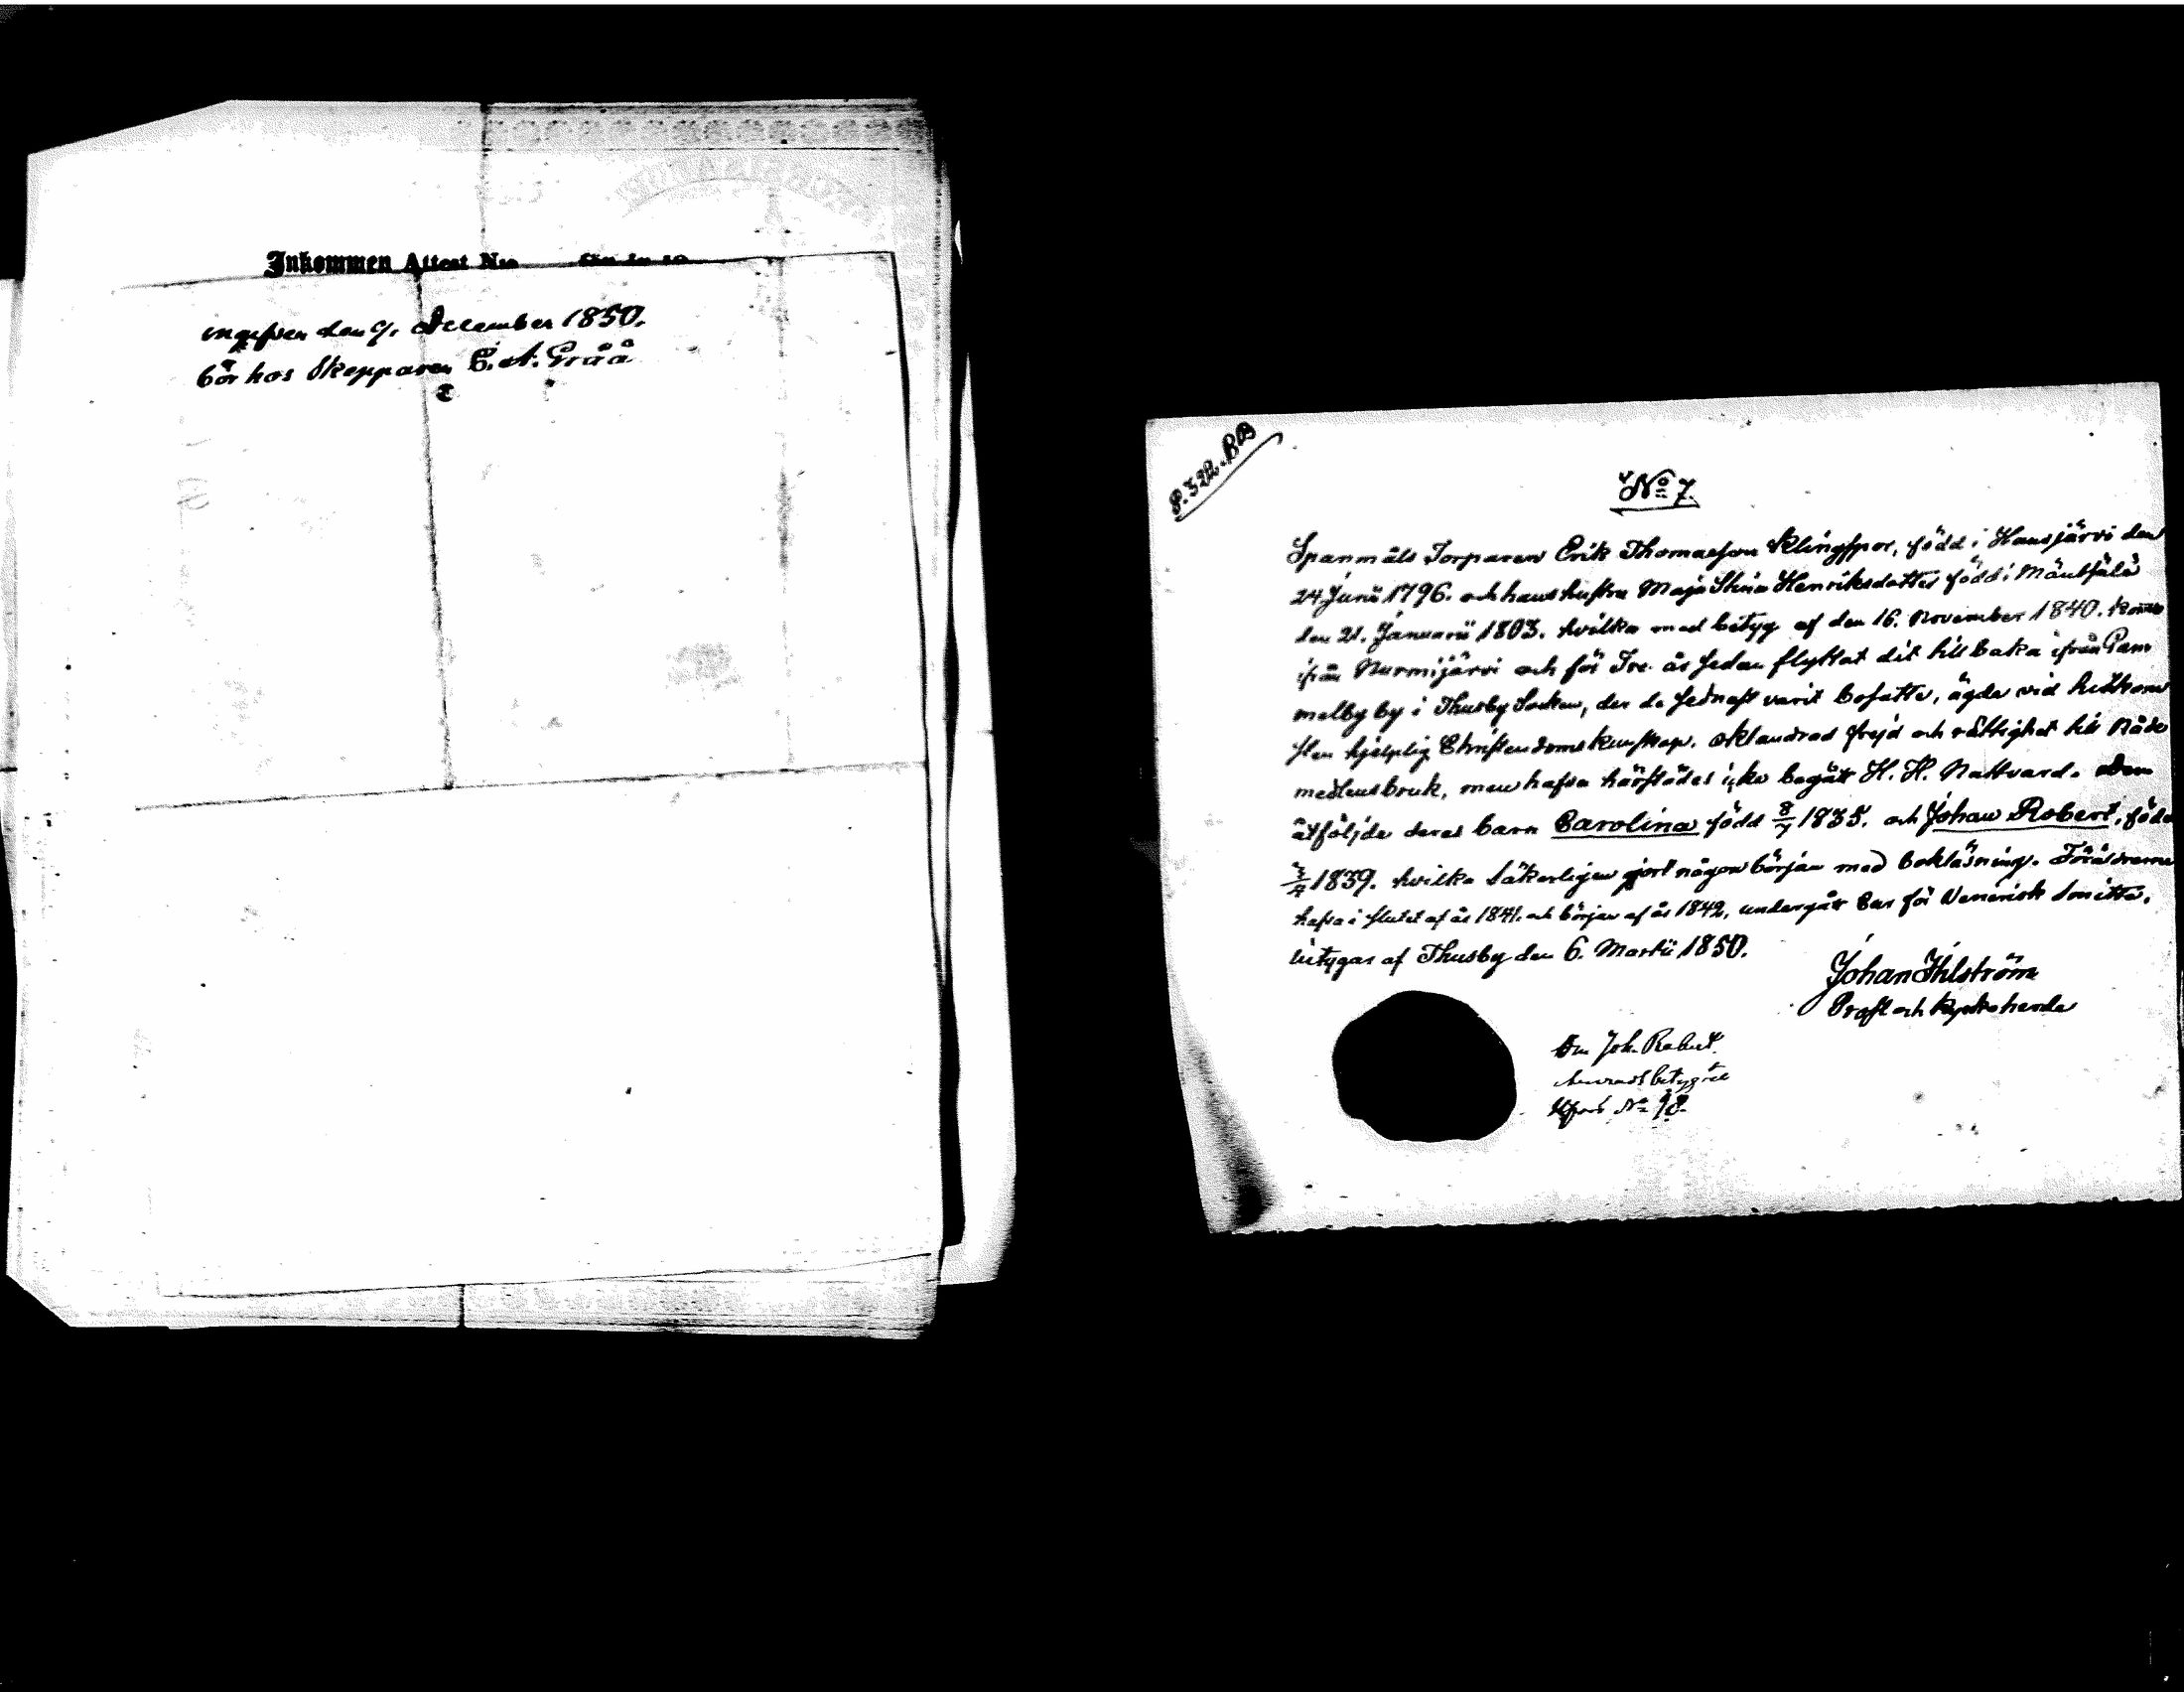 Inkommen Attest N:o
ingifven den 9. December 1850.
bör hos Skepparen E. A. Gråå
P. 322. B
N:o 7.
Spanmåls Torparen Erik Thomasson Klingspor, född i Hausjärvi den
24 Junii 1796. och hans hustru Maja Stina Henriksdotter född i Mäntsälä
den 21. Januarii 1803. hvilka med betyg af den 16. November 1840. kommo
ifrån Nurmijärvi och för Tre år sedan flyttat dit tillbaka ifrån Gam
melby by i Thusby Socken, der de sednast varit bosatte, ägde vid hitkom
sten hjelplig Christendomskunskap, oklandrad frejd och rättighet till Nåde
medlens bruk, men hafva härstädes icke begått H. H. Nattvard. Dem
åtföljde deras barn Carolina född 8/7 1835. och Johan Robert, född
1839. hvilka säkerligen gjort någon början med bokläsning. Föräldrarne
hafva i slutet af år 1841. och början af år 1842, undergått Cur för Venerisk smitta.
betygar af Thusby den 6. Martii 1850.
Johan Ihlström
Prost och Kyrkoherde
Om Joh. Robert
betyg
N:o 98.